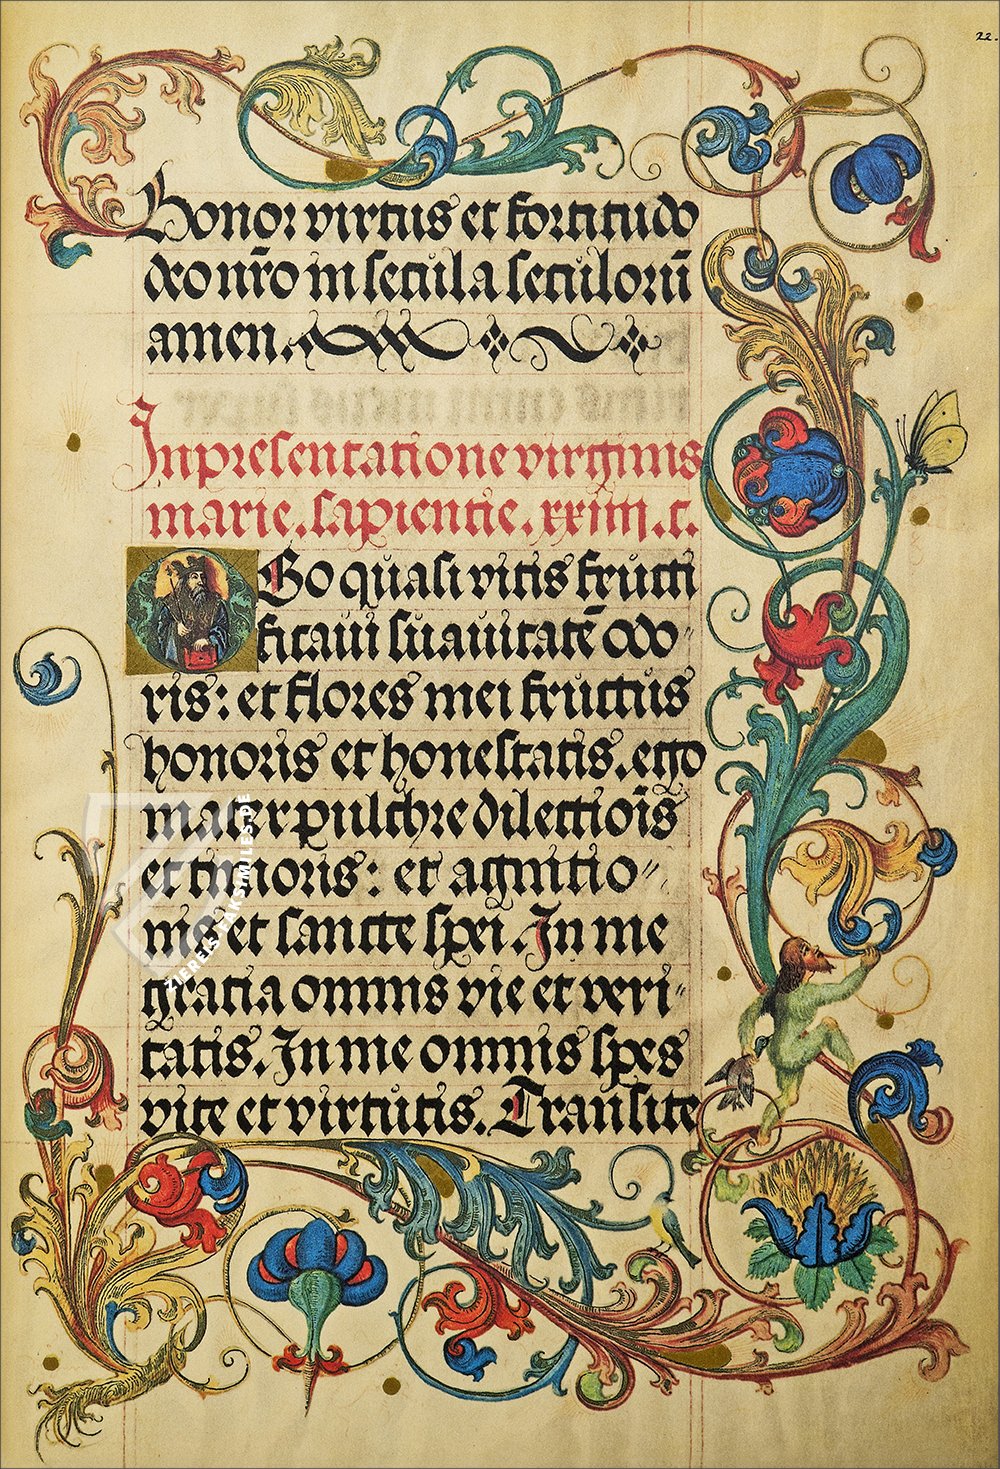 22.
Honor virtus et fortitudo
deo nr̄o in secula seculorū
amen.
In presentatione virginis
marie. sapientie. xxiiii. c.
Ego quasi vitis fructi
ficaui suauitatē odo〃
ris: et flores mei fructus
honoris et honestatis. ego
mater pulchre dilectiōis
et timoris: et agnitio〃
nis et sancte spei. In me
gratia omnis vie et veri〃
tatis. In me omnis spes
vite et virtutis. Transite
ZIEREIS FAKSIMILES.DE